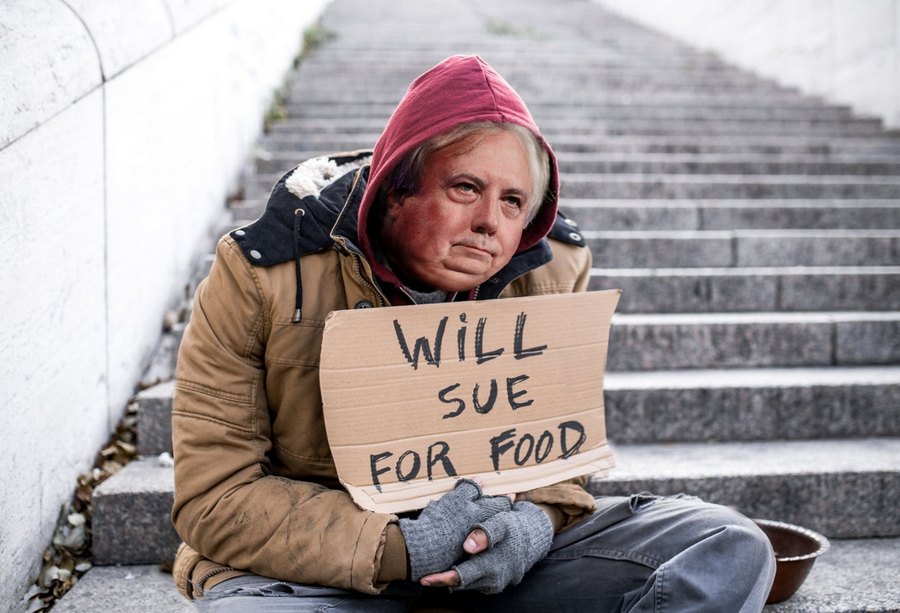 WiLL
SUE
FOR FOOD